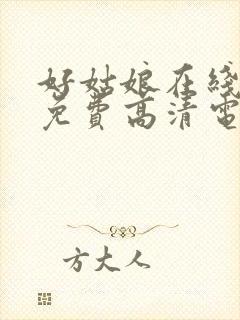 好姑娘在线
免费高清电
方大人